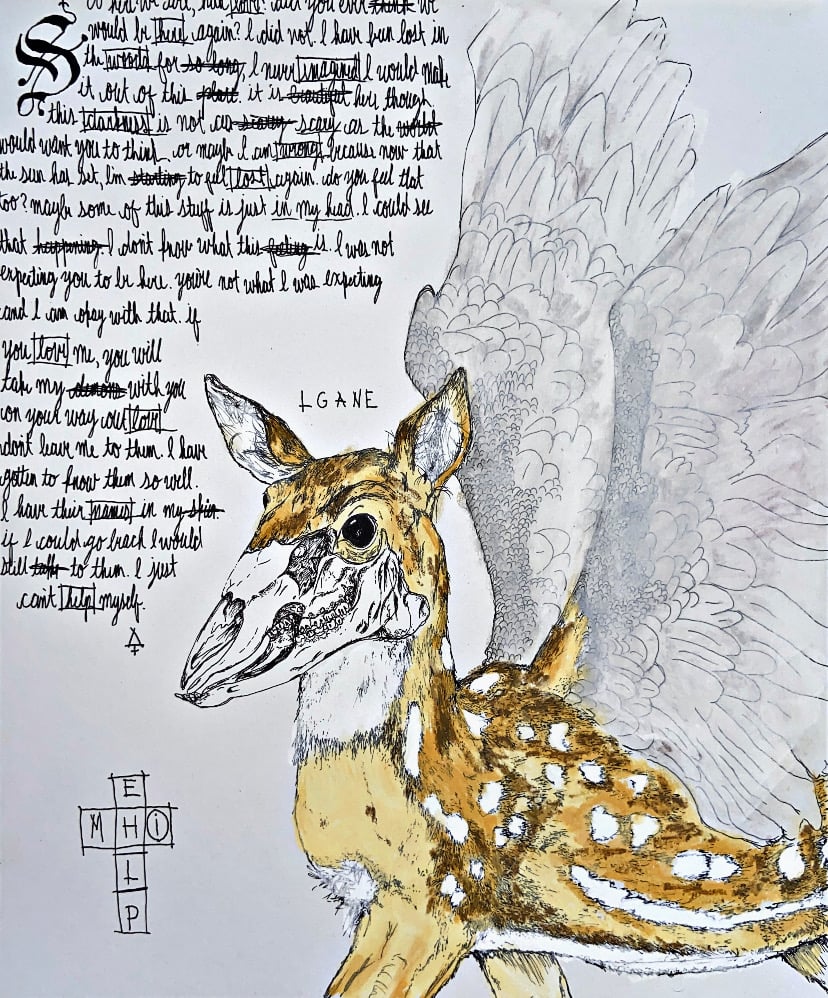 So here we are, huh love? did you ever think we
would be here again? I did not. I have been lost in
the world for so long, I never imagined I would make
it out of this place. it is beautiful here though
this darkness is not as scary as the world
would want you to think. or maybe I am wrong because now that
the sun has set, I'm starting to feel lost again. do you feel that
too? maybe some of this stuff is just in my head. I could see
that happening I don't know what this feeling is. I was not
expecting you to be here. you're not what I was expecting
and I am okay with that. if
you love me, you will
take my demons with you
on your way out love
don't leave me to them. I have
gotten to know them so well.
I have their names in my skin.
if I could go back I would
still talk to them. I just
can't help myself.
LGANE
E
M H i
L
P